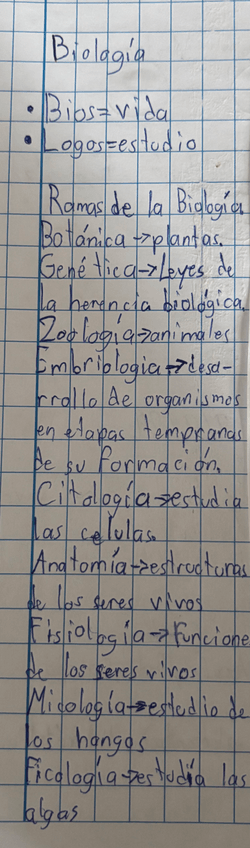 Biología
• Bios=vida
• Logos=estudio
Ramas de la Biología
Botánica→plantas.
Genética→Leyes de
la herencia biológica.
Zoología→animales
Embriologia→desa-
rrollo de organismos
en etapas tempranas
de su formación.
Citología→estudia
las celulas.
Anatomía→estructuras
de los seres vivos
Fisiología→Funcione
de los seres vivos
Micología→estudio de
los hongos
Ficología→estudia las
algas